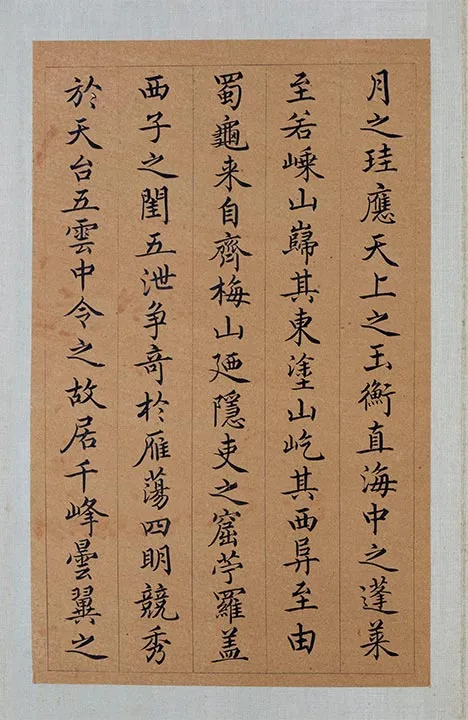 月之珪應天上之玉衡直海中之蓬萊
至若嵊山巋其東塗山屹其西舁至由
蜀龜来自齊梅山廼隱吏之窟苧羅盖
西子之閨五泄争竒於雁蕩四明競秀
於天台五雲中令之故居千峰曇翼之